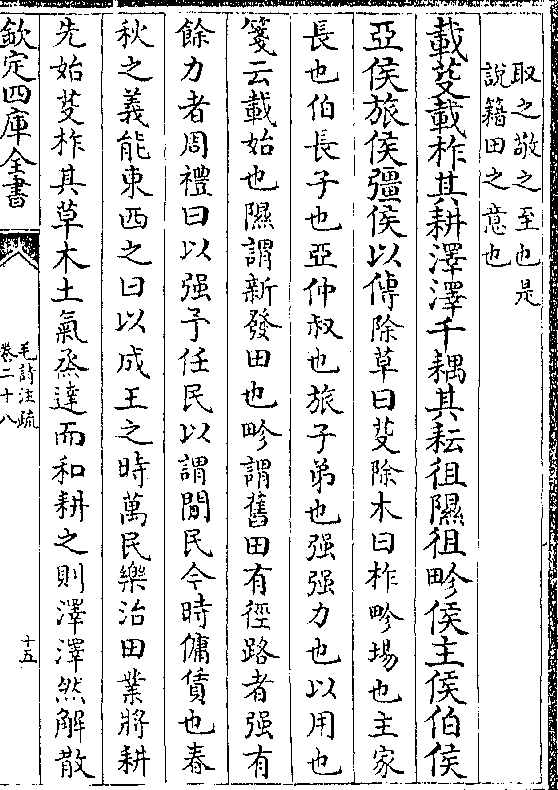 取之敬之至也是
說籍田之意也
載芟載柞其耕澤澤千耦其耘徂隰徂畛侯主侯伯侯
亞侯旅侯彊侯以傳除草曰芟除木曰柞畛場也主家
長也伯長子也亞仲叔也旅子弟也强强力也以用也
箋云載始也隰謂新發田也畛謂舊田有徑路者强有
餘力者周禮曰以强予任民以謂閒民今時傭賃也春
秋之義能東西之曰以成王之時萬民樂治田業將耕
先始芟柞其草木土氣烝達而和耕之則澤澤然解散
欽定四庫全書
毛詩注疏
卷二十八
十五